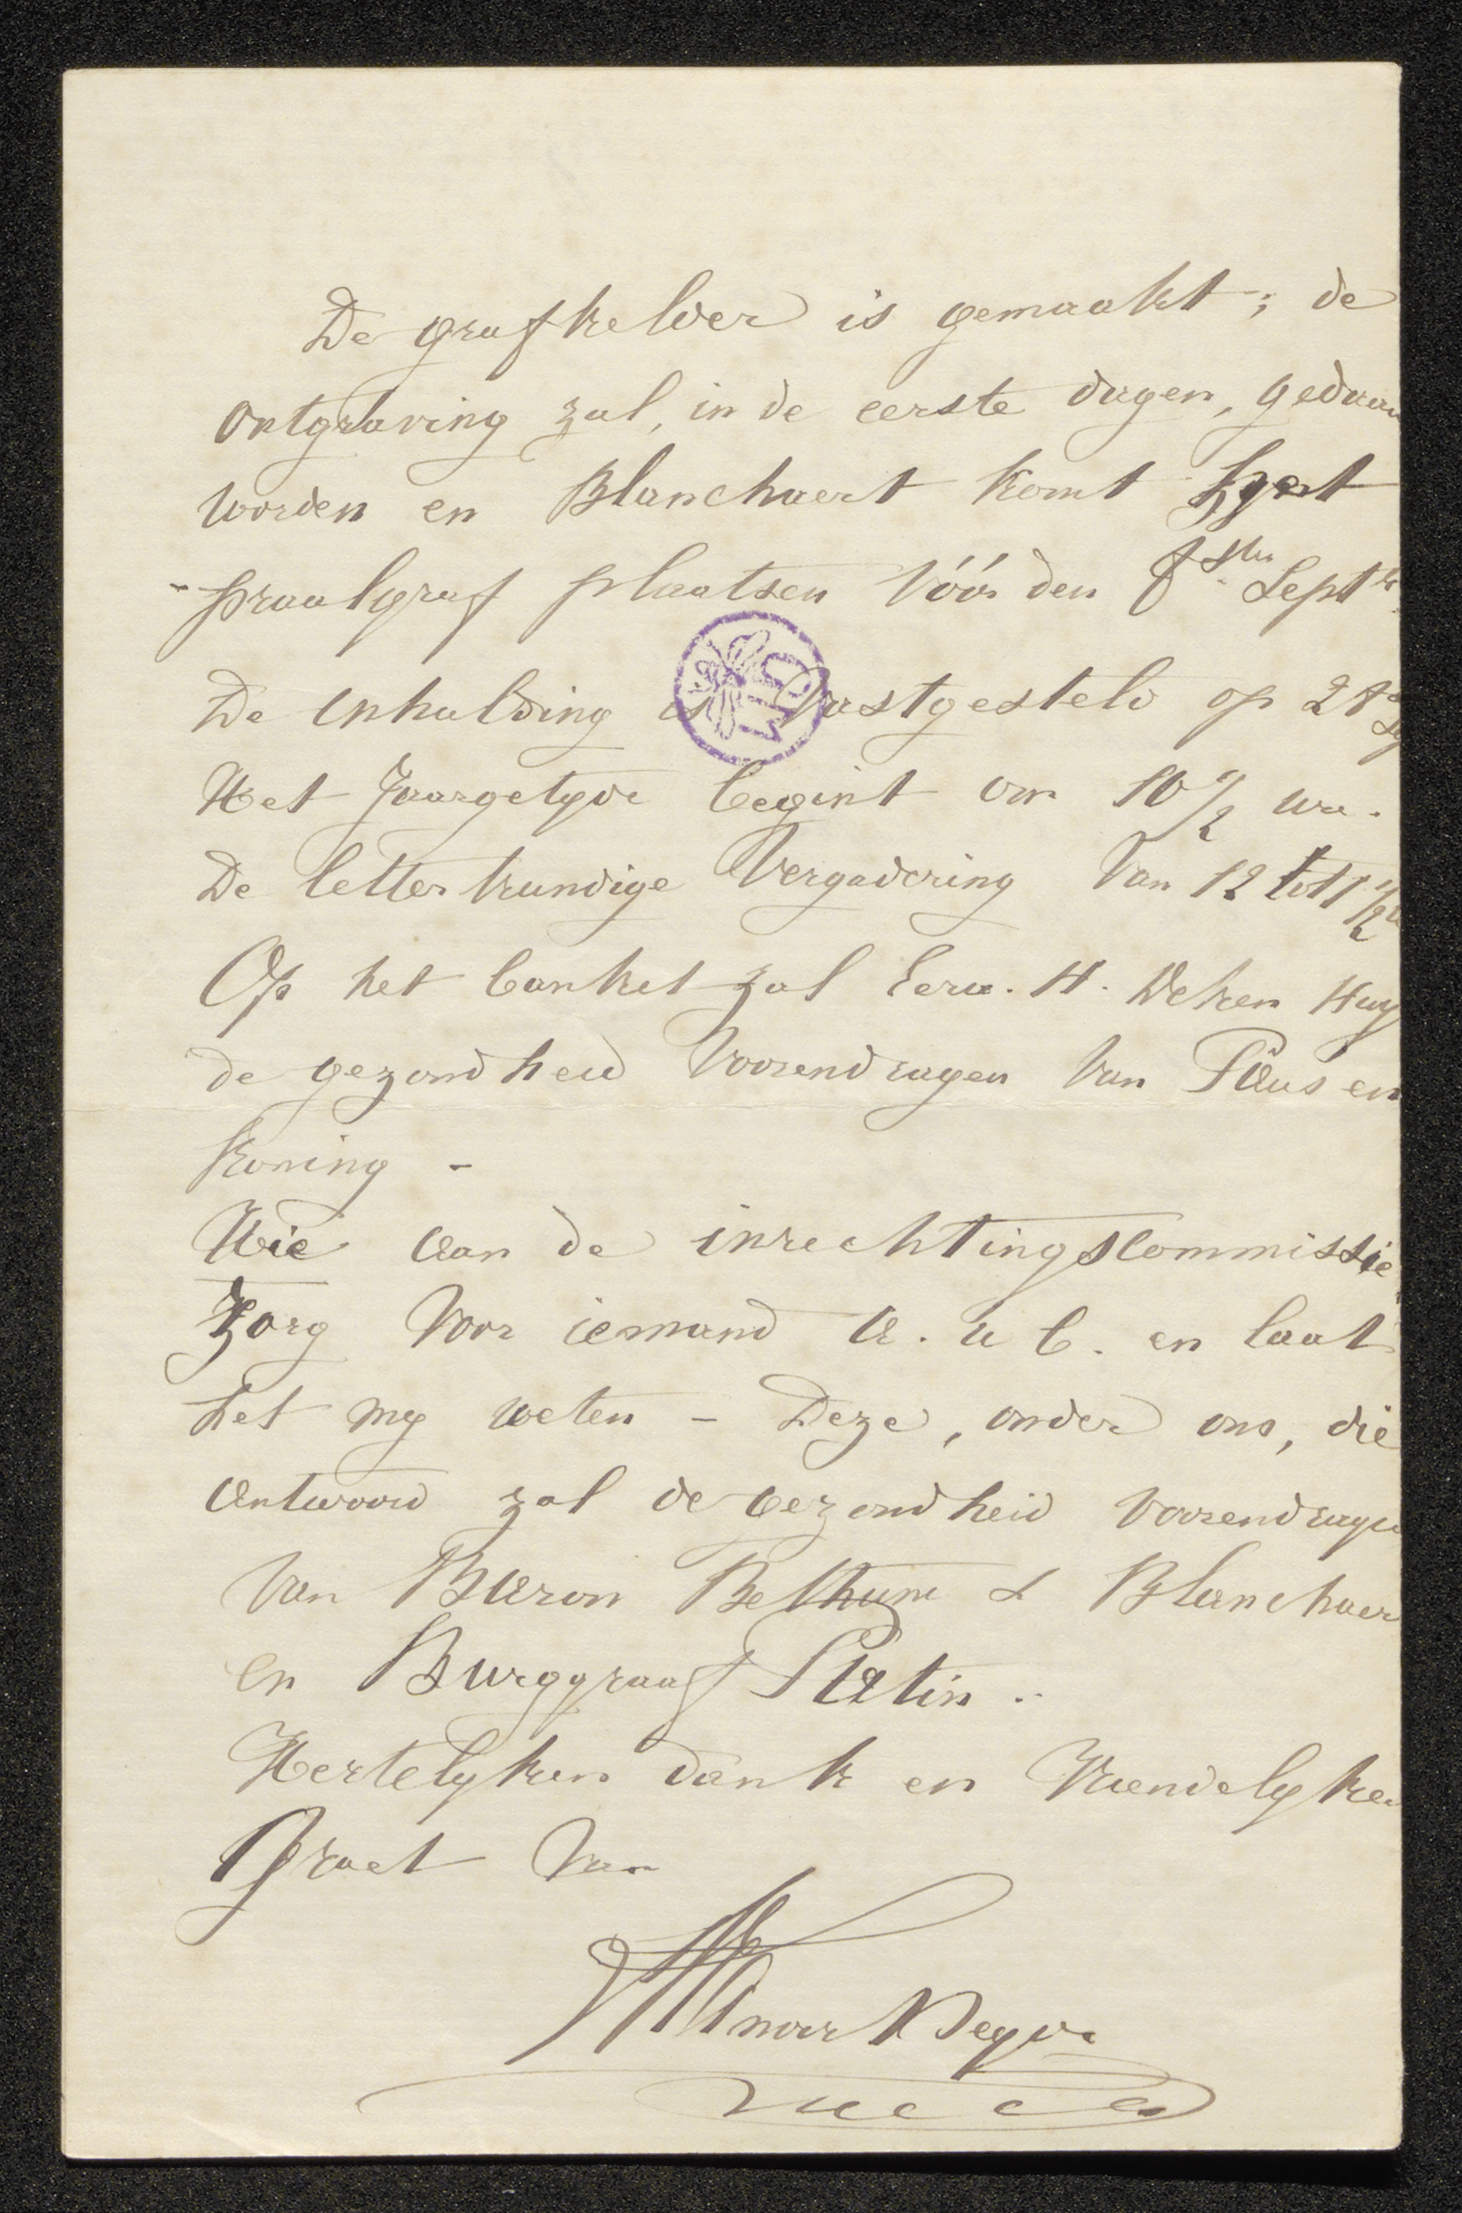 De grafkelder is gemaakt; de
ontgraving zal, in de eerste dagen, gedaan
worden en Blanchaert komt het
praalgraf plaatsen vóór den 8sten Septbr
De inhulding is vastgesteld op 28
Het Jaargetyde begint om 10 1/2 ure.
De letterkundige Vergadering van 12 tot 1 1/2 u
Op het banket zal Eerw. H. Deken Huy
de gezondheid voorendragen van Paus en
koning -
Wie van de inrechtingscommissie
Zorg voor iemand A. u b. en laat
het my weten - Deze, onder ons, die
antwoord zal de gezondheid voorendragen
van Baron Bethune & Blanchaer
en Burggraaf Patin ..
Hertelyken dank en Vriendelyken
Groet van